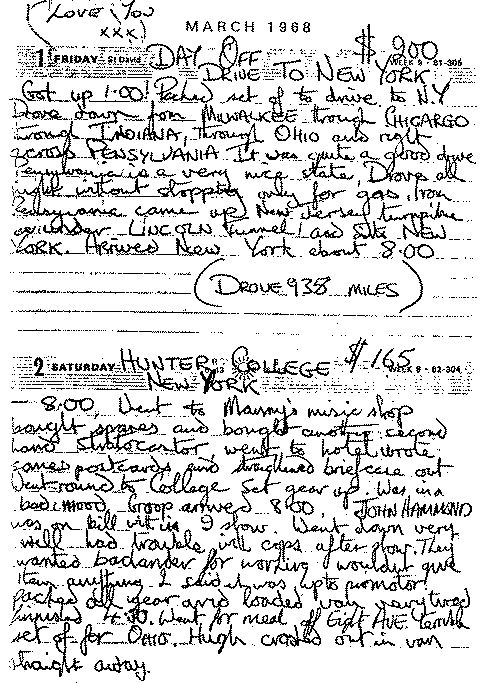 (Love You
xxx)
MARCH 1968
1 FRIDAY - St David DAY OFF $ 900
DRIVE TO NEW YORK WEEK 9 - 61-305
Got up 1:00! Packed set of to drive to N.Y
Drove down from MILWAUKEE trough CHICARGO
trough INDIANA, through OHIO and right
across PENSYLVANIA It was quite a good drive
Pensylvania is a very nice state, Drove all
night without stopping only for gas. From
Pensylvania came up New Jersey turnpike
under LINCOLN tunnel and into NEW
YORK. Arrived New York about 8.00
(DROVE 938 MILES)
2 SATURDAY HUNTER COLLEGE $ 165
NEW YORK WEEK 9 - 62-304
8.00, Went to Manny's music shop
bought spares and bought another second
hand Stratocastor, went to hotel wrote
some postcards and straightened briefcase out
Went round to College Set gear up. Was in a
bad mood, Group arrived 8:00, JOHN HAMMOND
was on bill with us 2 show. Went down very
well had trouble with cops after play. They
wanted backander for working I wouldnt give
them anything I said it was upto promotor
Packed all gear and loaded van very tired
finished 4.30. Went for meal of Eight AVE
set of for OHIO. Hugh crashed out in van
straight away.